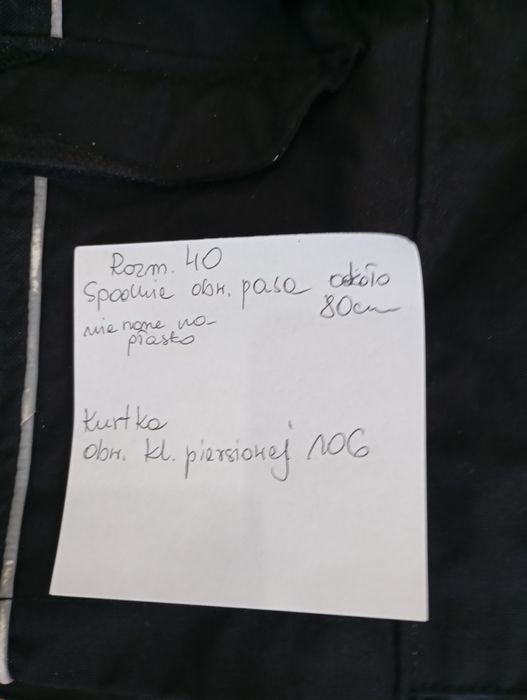 Rozm. 40
Spodnie obw. pasa około
80cm
mierzone na-
płasko
Kurtka
obw. kl. piersiowej 106